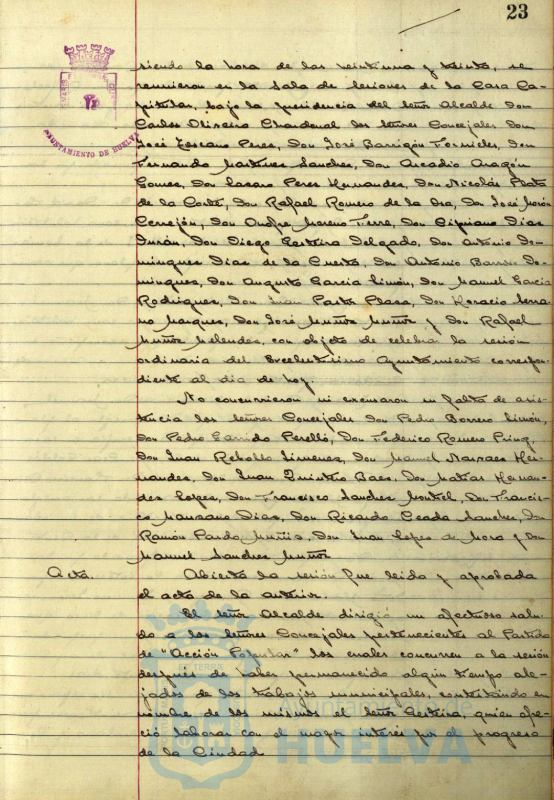 23
AYUNTAMIENTO DE HUELVA
siendo la hora de las veintiuna y treinta, se
reunieron en la Sala de Sesiones de la Casa Ca-
pitular, bajo la presidencia del señor Alcalde Don
Carlos Oliveira Chardenal los señores Concejales Don
José Lescano Peres, Don José Barrigón Fornieles, Don
Fernando Martines Sanches, Don Arcadio Aragón
Gomes, Don Lasaro Peres Hernandes, Don Nicolás Plata
de la Corte, Don Rafael Romero de la Osa, Don José Morón
Cerrejón, Don Onofre Moreno Terre, Don Cipriano Dias
Durán, Don Diego Certeira Delgado, Don Antonio Do-
mingues Dias de la Cuesta, Don Antonio Barroso Do-
mingues, Don Augusto Garcia Limón, Don Manuel Garcia
Rodrigues, Don Juan Pastor Plasa, Don Horacio Serra-
no Marques, Don José Muñoz Muñoz y Don Rafael
Muñoz Melendes, con objeto de celebrar la sesión
ordinaria del Excelentisimo Ayuntamiento correspon-
diente al dia de hoy.
No concurrieron ni excusaron su falta de asis-
tencia los señores Concejales Don Pedro Borrero Limón,
Don Pedro Garrido Perelló, Don Federico Romero
Don Juan Rebollo Jimenes, Don Manuel Narvaes Her-
nandes, Don Juan Quintero Baes, Don Matias Hernan-
des Lopes, Don Francisco Sanches Montiel, Don Francis-
co Manzano Dias, Don Ricardo Ceada Sanches, Don
Ramón Pardo Don Juan Lopes de Mora y Don
Manuel Sanches Muñoz
Acta. Abierta la sesión fue leida y aprobada
el acta de la anterior.
El señor Alcalde dirigió un afectuoso salu-
do a los señores Concejales pertenecientes al Partido
de "Acción Popular" los cuales concurren a la sesión
después de haber permanecido algún tiempo ale-
jados de los trabajos municipales, contestando en
nombre de los mismos el señor Certeira, quien ofre-
ció laborar con el mayor interés por el progreso
de la Ciudad
Ayuntamiento de
HUELVA